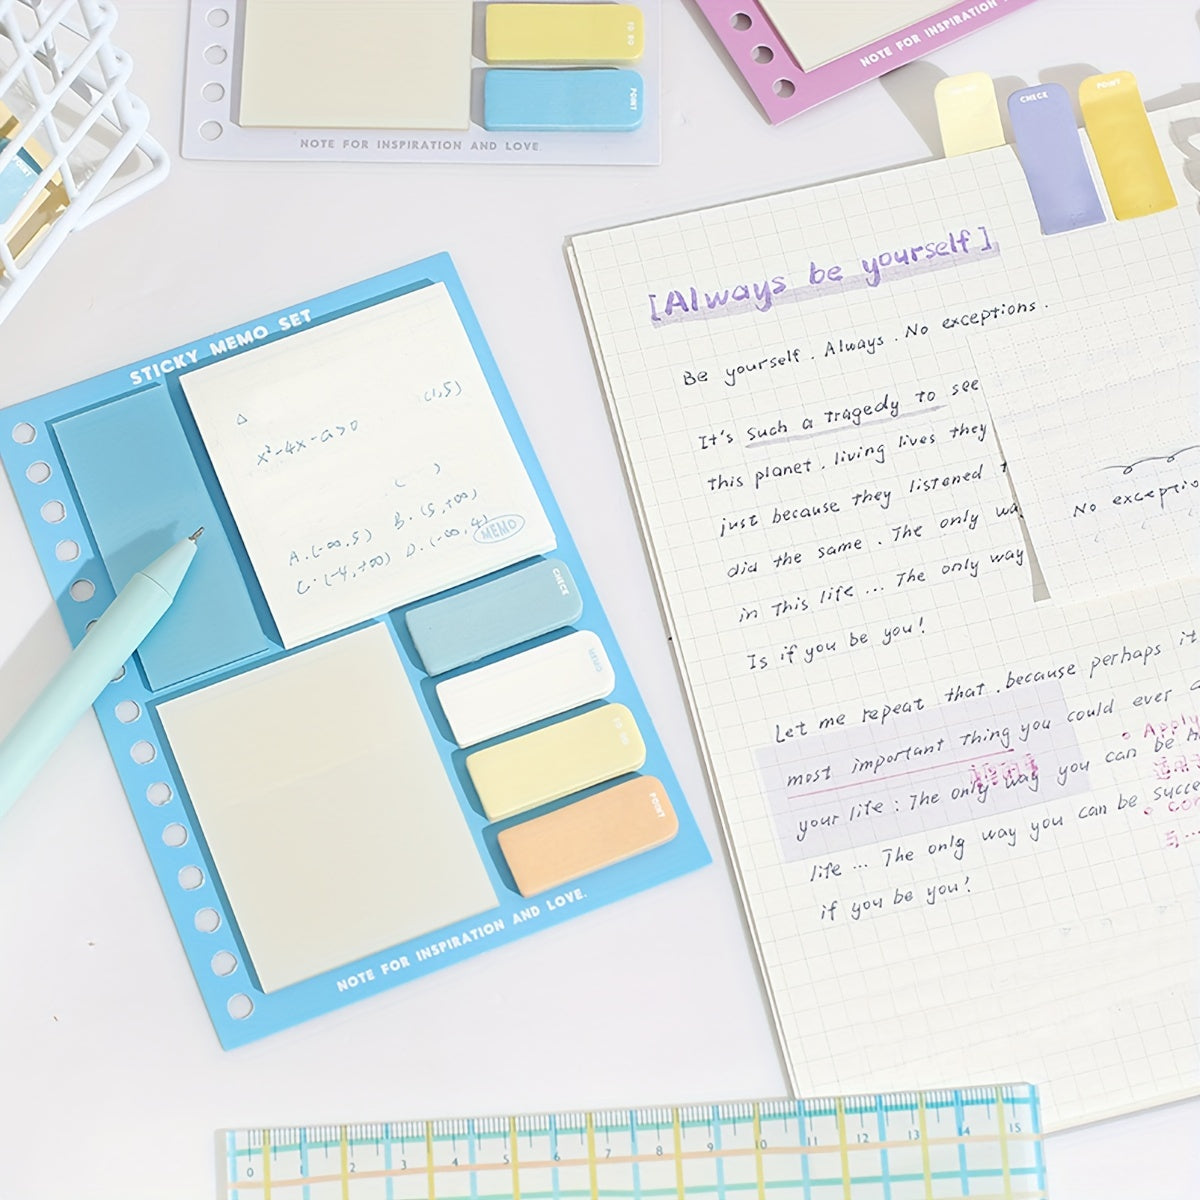 TO DO
POINT
NOTE FOR INSPIRATION AND LOVE.
NOTE FOR INSPIRATION
CHECK
POINT
POINT
STICKY MEMO SET
(1,5)
x²-4x-a>0
( )
A.(-∞,5) B.(5,+∞)
C.(-4,+∞) D.(-∞,4)
MEMO
CHECK
TO DO
POINT
NOTE FOR INSPIRATION AND LOVE.
[Always be yourself]
Be yourself. Always. No exceptions.
It's such a tragedy to see
this planet. living lives they
just because they listened
did the same. The only wa
in this life ... The only way
Is if you be you!
No exceptio
Let me repeat that. because perhaps it
most important thing you could ever
your life: The only way you can be
life ... The only way you can be succe
if you be you!
• Apply
• con
与...
0 1 2 3 4 5 6 7 8 9 10 11 12 13 14 15